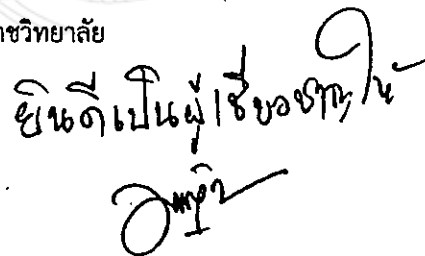 าชวิทยาลัย
ยินดีเป็นผู้เชี่ยวชาญให้